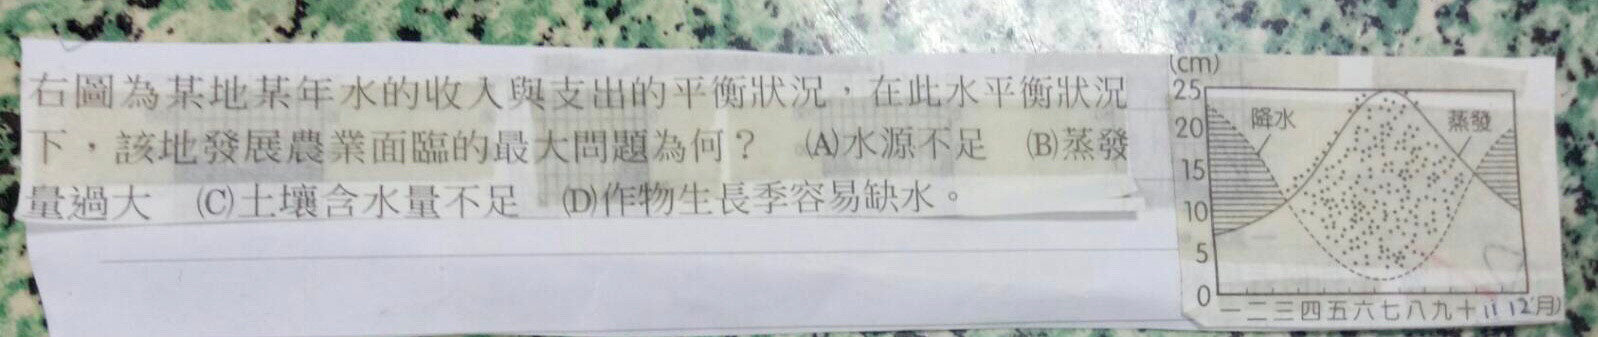 右圖為某地某年水的收入與支出的平衡狀況，在此水平衡狀況
下，該地發展農業面臨的最大問題為何？ (A)水源不足 (B)蒸發
量過大 (C)土壤含水量不足 (D)作物生長季容易缺水。
(cm)
25
20
15
10
5
0
降水
蒸發
一二三四五六七八九十11 12(月)